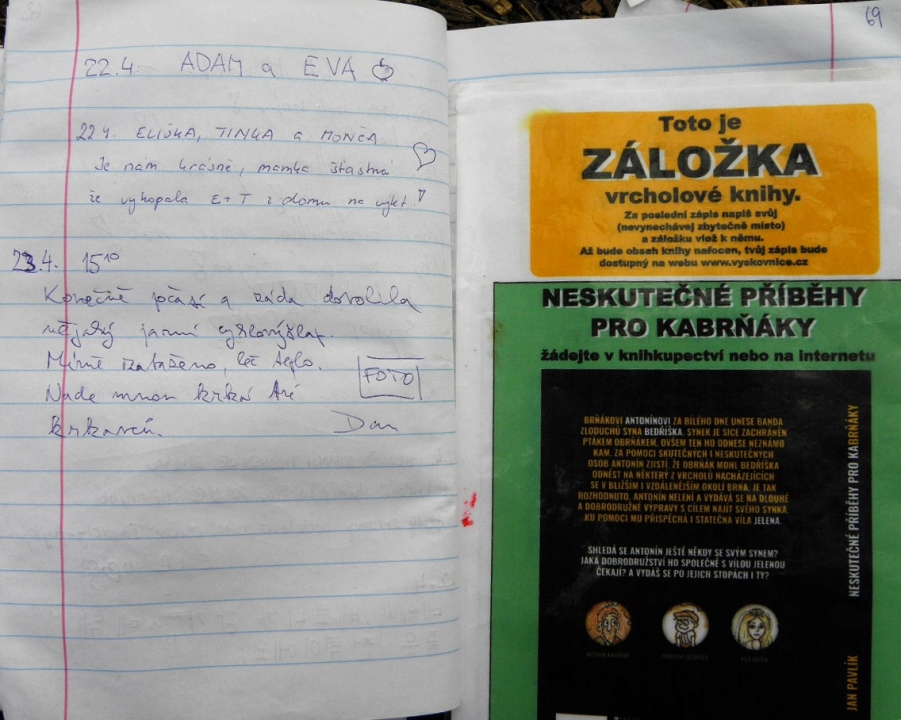 22.4. ADAM a EVA
22.4. ELIŠKA, TINKA a MONČA
Je nám krásně, mamka šťastná
že vykopala E+T z domu na výlet!
23.4. 15¹⁰
Konečně počasí a záda dovolila
nějaký jarní cyklovýšlap.
Mírně zataženo, leč teplo.
FOTO
Nade mnou krká tré
krkavců.
Dan
69
Toto je
ZÁLOŽKA
vrcholové knihy.
Za poslední zápis napiš svůj
(nevynechávej zbytečně místo)
a záložku vlož k němu.
Až bude obsah knihy nafocen, tvůj zápis bude
dostupný na webu www.vyskovnice.cz
NESKUTEČNÉ PŘÍBĚHY
PRO KABRŇÁKY
žádejte v knihkupectví nebo na internetu
BRŇÁKOVI ANTONÍNOVI ZA BÍLÉHO DNE UNESE BANDA
ZLODUCHŮ SYNA BEDŘÍŠKA. SYNEK JE SICE ZACHRÁNĚN
PTÁKEM OBRŇÁKEM, OVŠEM TEN HO ODNESE NEZNÁMO
KAM. ZA POMOCI SKUTEČNÝCH I NESKUTEČNÝCH
OSOB ANTONÍN ZJISTÍ, ŽE OBRŇÁK MOHL BEDŘÍŠKA
ODNÉST NA NĚKTERÝ Z VRCHOLŮ NACHÁZEJÍCÍCH
SE V BLIŽŠÍM I VZDÁLENĚJŠÍM OKOLÍ BRNA. JE TAK
ROZHODNUTO. ANTONÍN NELENÍ A VYDÁVÁ SE NA DLOUHÉ
A DOBRODRUŽNÉ VÝPRAVY S CÍLEM NAJÍT SVÉHO SYNKA.
KU POMOCI MU PŘISPĚCHÁ I STATEČNÁ VÍLA JELENA.
SHLEDÁ SE ANTONÍN JEŠTĚ NĚKDY SE SVÝM SYNEM?
JAKÁ DOBRODRUŽSTVÍ HO SPOLEČNĚ S VÍLOU JELENOU
ČEKAJÍ? A VYDÁŠ SE PO JEJICH STOPÁCH I TY?
NESKUTEČNÉ PŘÍBĚHY PRO KABRŇÁKY
JAN PAVLÍK